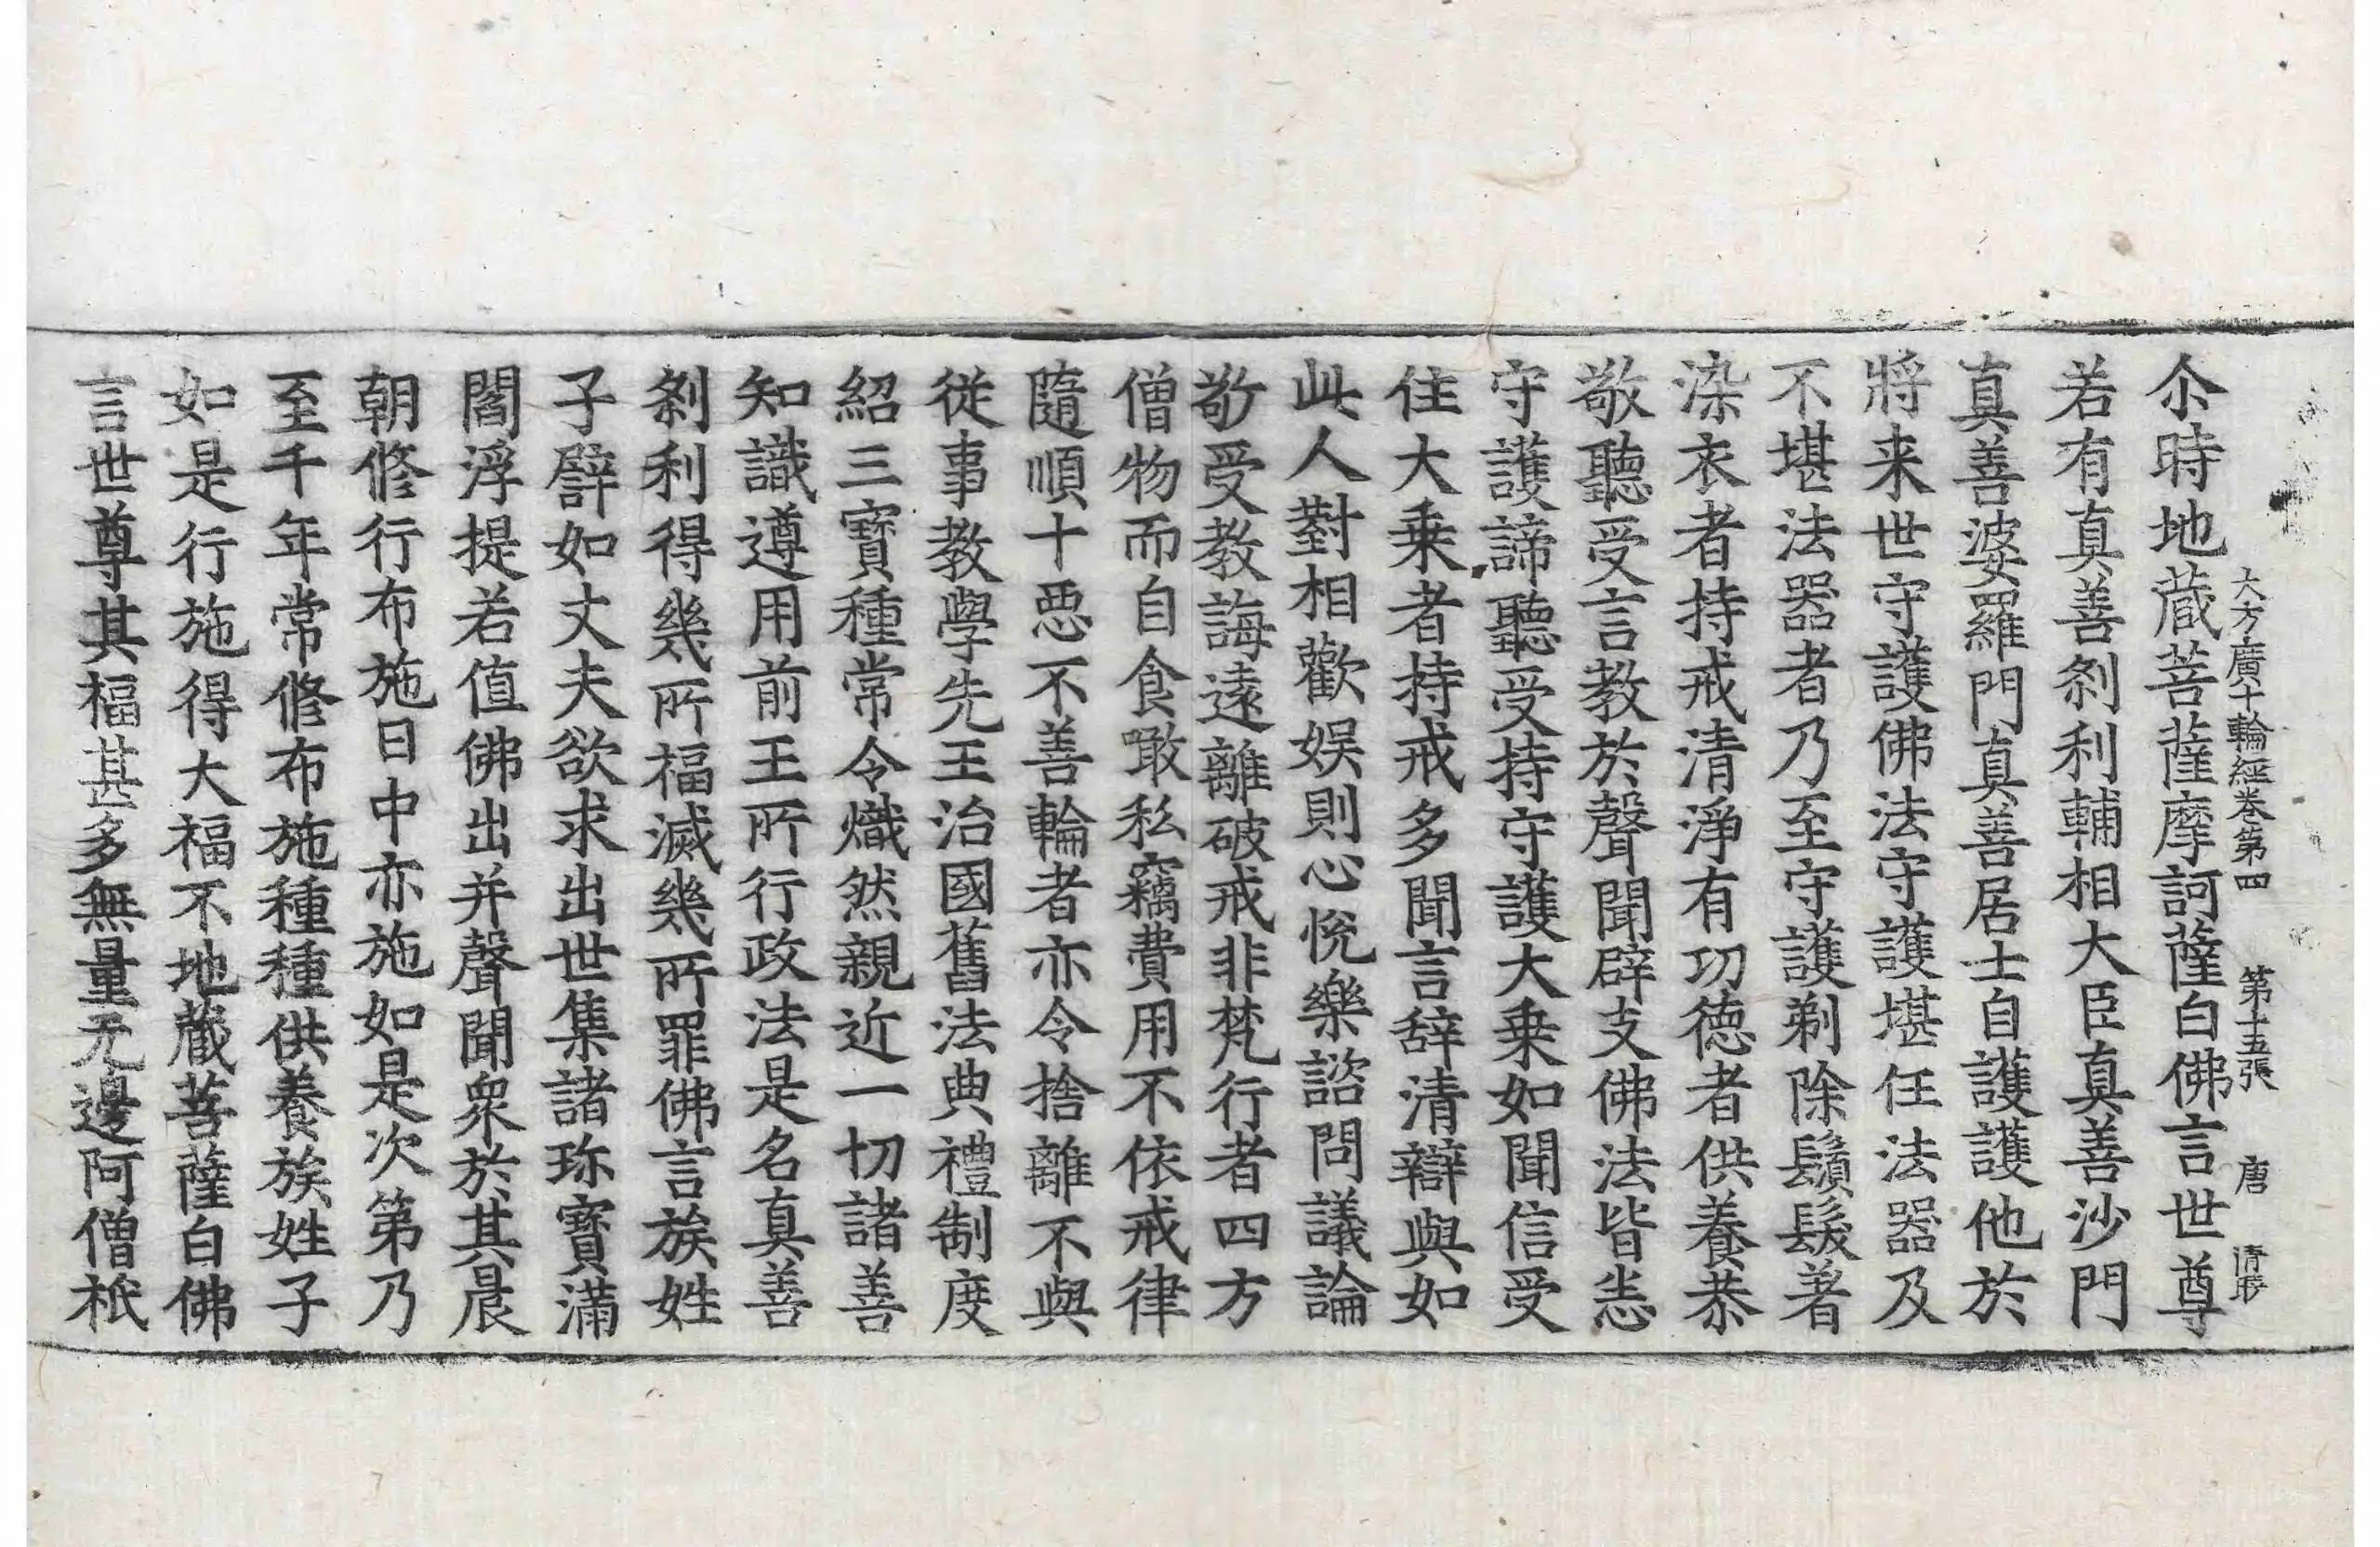 大方廣十輪經卷第四　第十五張　唐
尒時地蔵菩薩摩訶薩白佛言世尊
若有真善刹利輔相大臣真善沙門
真善婆羅門真善居士自護護他於
將来世守護佛法守護堪任法器及
不堪法器者乃至守護剃除鬚髮著
染衣者持戒清淨有功徳者供養恭
敬聽受言教於聲聞辟支佛法皆恙
守護諦聽受持守護大乗如聞信受
住大乗者持戒多聞言辞清辯與如
此人對相歡娛則心悅樂諮問議論
敬受教誨遠離破戒非梵行者四方
僧物而自食噉私竊費用不依戒律
隨順十惡不善輪者亦令捨離不與
従事教學先王治國舊法典禮制度
紹三寶種常令熾然親近一切諸善
知識遵用前王所行政法是名真善
刹利得幾所福滅幾所罪佛言族姓
子譬如丈夫欲求出世集諸珎寶滿
閻浮提若值佛出并聲聞衆於其晨
朝修行布施日中亦施如是次第乃
至千年常修布施種種供養族姓子
如是行施得大福不地蔵菩薩白佛
言世尊其福甚多無量无邊阿僧祇